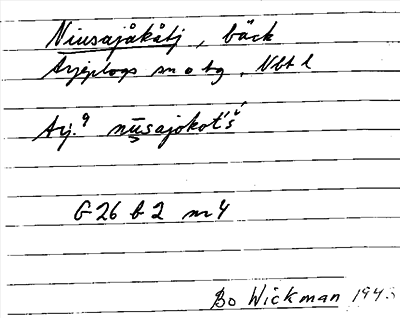 Niusajåkåtj, bäck
Arjeplogs sn o tg, Nbt l
Arj.9 nïusajokot'š́
G 26 b 2 nr 4
Bo Wickman 194